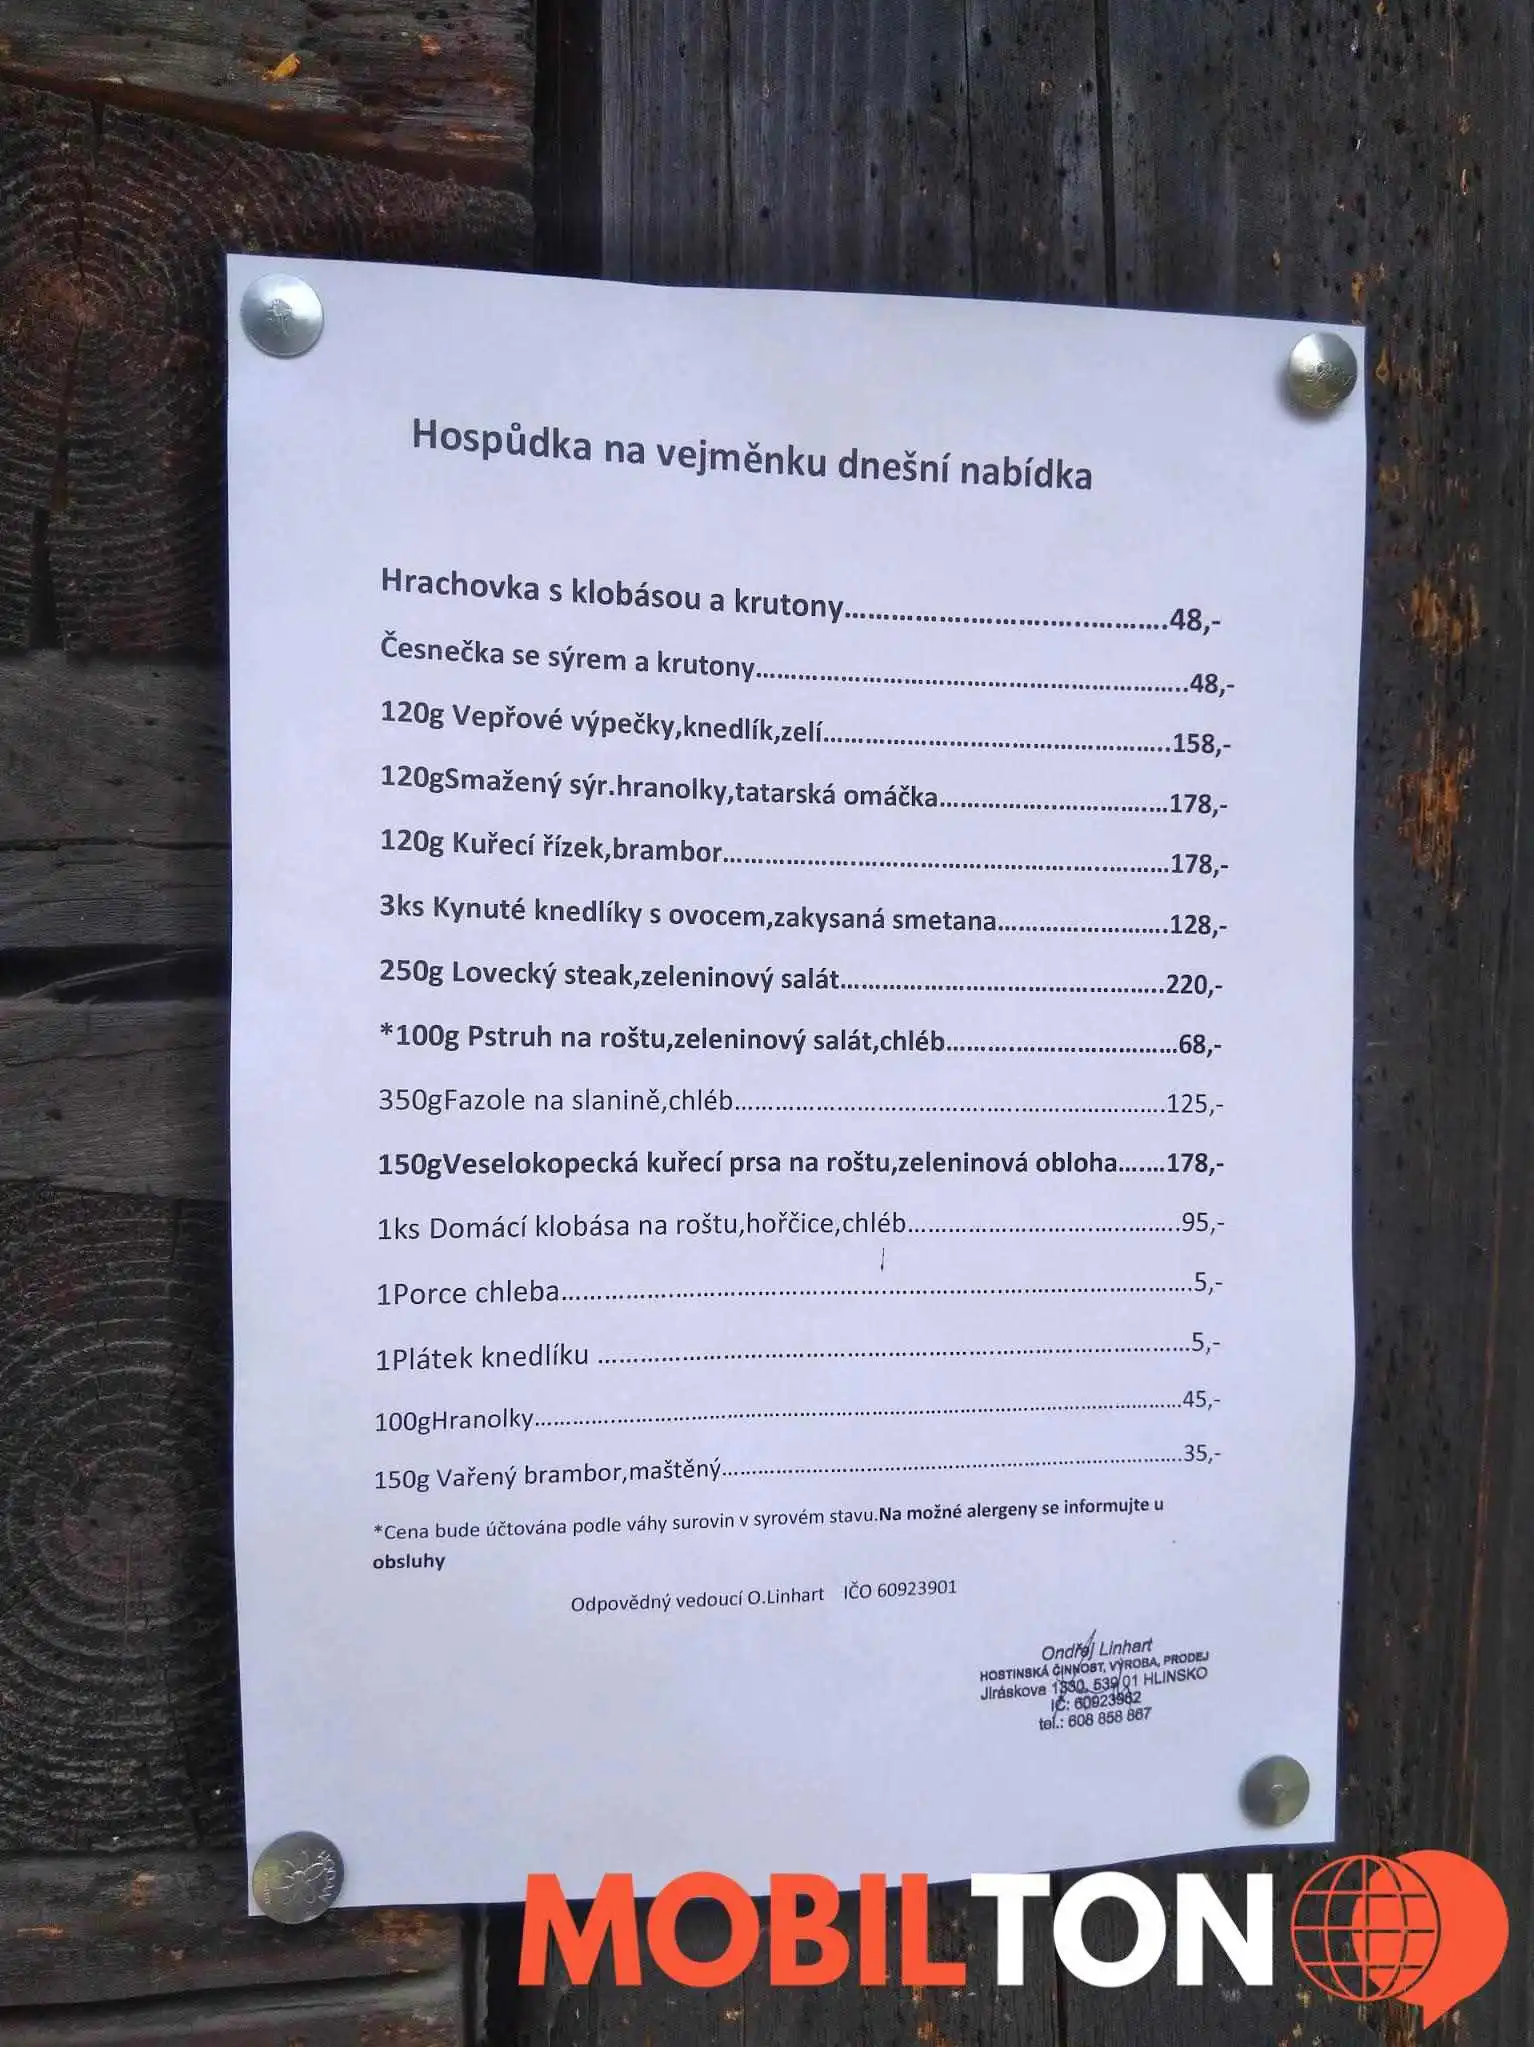 Hospůdka na vejměnku dnešní nabídka
Hrachovka s klobásou a krutony.............................................48,-
Česnečka se sýrem a krutony.............................................48,-
120g Vepřové výpečky,knedlík,zelí.............................................158,-
120gSmažený sýr.hranolky,tatarská omáčka.............................................178,-
120g Kuřecí řízek,brambor.............................................178,-
3ks Kynuté knedlíky s ovocem,zakysaná smetana........................128,-
250g Lovecký steak,zeleninový salát.............................................220,-
*100g Pstruh na roštu,zeleninový salát,chléb.................................68,-
350gFazole na slanině,chléb.............................................125,-
150gVeselokopecká kuřecí prsa na roštu,zeleninová obloha.......178,-
1ks Domácí klobása na roštu,hořčice,chléb.......................................95,-
1Porce chleba.............................................5,-
1Plátek knedlíku .............................................5,-
100gHranolky.............................................45,-
150g Vařený brambor,maštěný.............................................35,-
*Cena bude účtována podle váhy surovin v syrovém stavu.Na možné alergeny se informujte u
obsluhy
Odpovědný vedoucí O.Linhart IČO 60923901
Ondřej Linhart
HOSTINSKÁ ČINNOST, VÝROBA, PRODEJ
Jiráskova 1330, 539 01 HLINSKO
IČ: 60923962
tel.: 608 858 867
MOBILTON